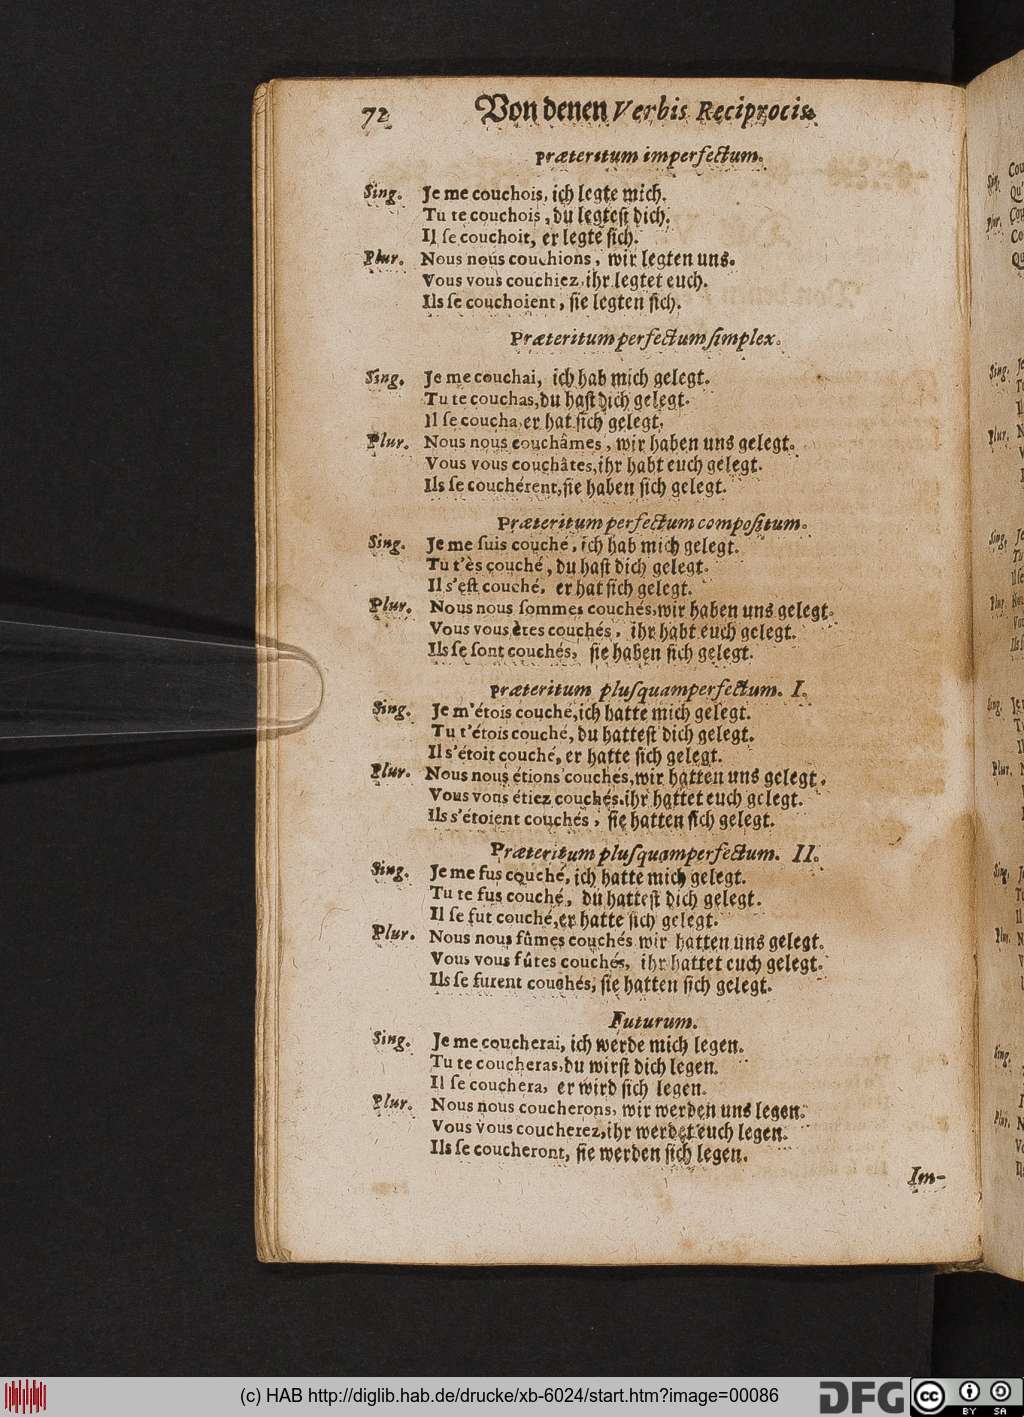 72 Von denen Verbis Reciprocis
Præteritum imperfectum.
Sing. Je me couchois, ich legte mich.
Tu te couchois, du legtest dich.
Il se couchoit, er legte sich.
Plur. Nous nous couchions, wir legten uns.
Vous vous couchiez, ihr legtet euch.
Ils se couchoient, sie legten sich.
Præteritum perfectum simplex.
Sing. Je me couchai, ich hab mich gelegt.
Tu te couchas, du hast dich gelegt.
Il se coucha, er hat sich gelegt.
Plur. Nous nous couchâmes, wir haben uns gelegt.
Vous vous couchâtes, ihr habt euch gelegt.
Ils se couchérent, sie haben sich gelegt.
Præteritum perfectum compositum.
Sing. Je me suis couché, ich hab mich gelegt.
Tu t'ès couché, du hast dich gelegt.
Il s'est couché, er hat sich gelegt.
Plur. Nous nous sommes couchés, wir haben uns gelegt.
Vous vous ètes couchés, ihr habt euch gelegt.
Ils se sont couchés, sie haben sich gelegt.
Præteritum plusquamperfectum. I.
Sing. Je m'étois couché, ich hatte mich gelegt.
Tu t'étois couché, du hattest dich gelegt.
Il s'étoit couché, er hatte sich gelegt.
Plur. Nous nous étions couchés, wir hatten uns gelegt.
Vous vous étiez couchés, ihr hattet euch gelegt.
Ils s'étoient couchés, sie hatten sich gelegt.
Præteritum plusquamperfectum. II.
Sing. Je me fus couché, ich hatte mich gelegt.
Tu te fus couché, du hattest dich gelegt.
Il se fut couché, er hatte sich gelegt.
Plur. Nous nous fûmes couchés wir hatten uns gelegt.
Vous vous fûtes couchés, ihr hattet euch gelegt.
Ils se furent couchés, sie hatten sich gelegt.
Futurum.
Sing. Je me coucherai, ich werde mich legen.
Tu te coucheras, du wirst dich legen.
Il se couchera, er wird sich legen.
Plur. Nous nous coucherons, wir werden uns legen.
Vous vous coucherez, ihr werdet euch legen.
Ils se coucheront, sie werden sich legen.
Im-
(c) HAB http://diglib.hab.de/drucke/xb-6024/start.htm?image=00086
DFG
cc BY SA